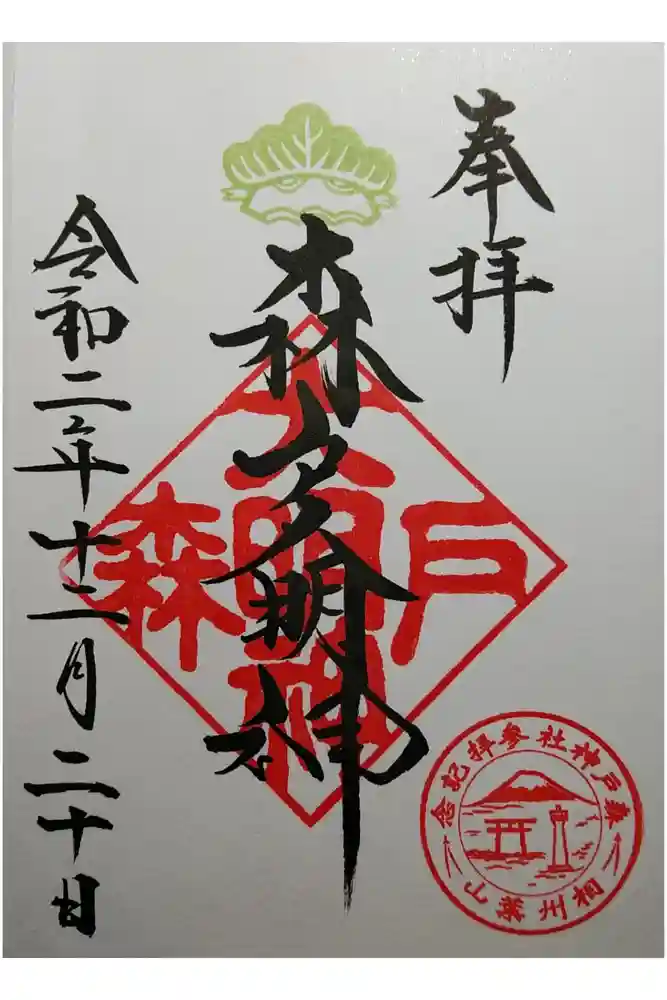 奉拝
森戸大明神
令和二年十二月二十日
森戸大明神
森戸神社参拝記念
相州葉山